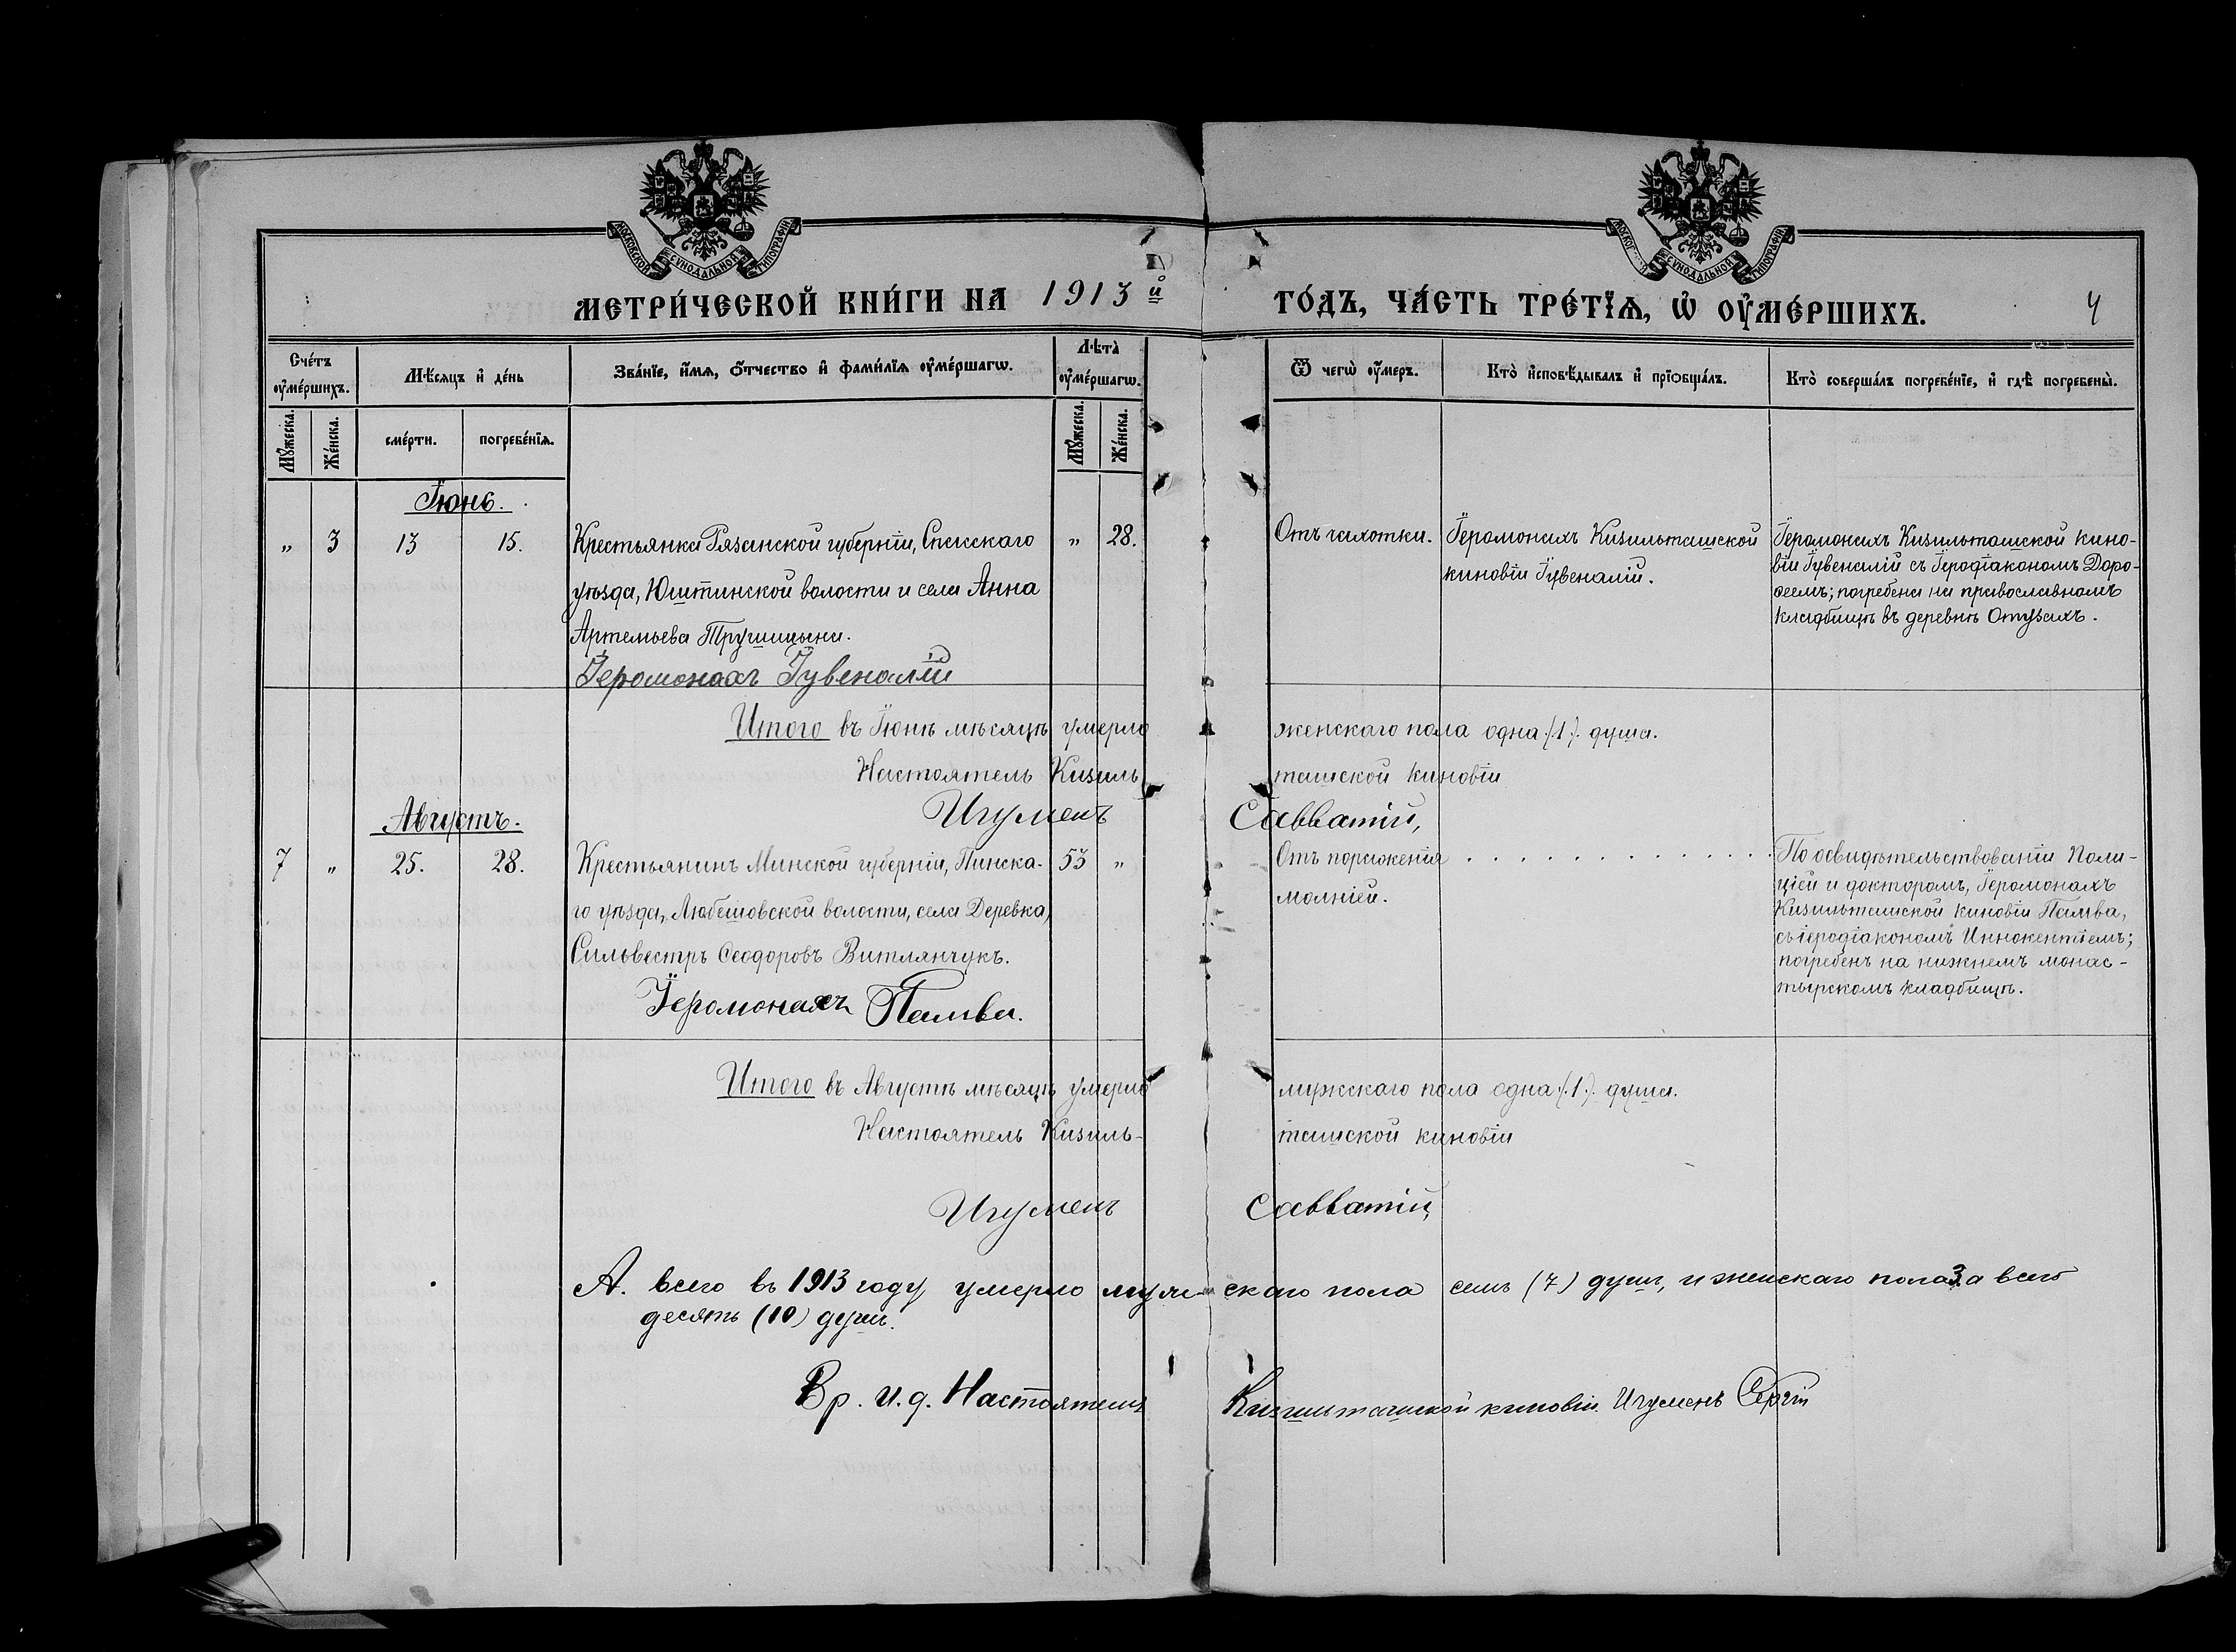 МОСКОВСКОЙ СУНОДАЛЬНОЙ ТИПОГРАФІИ
МОСКОВ СУНОДАЛЬНОЙ ТИПОГРАФІИ
МЕТРИ́ЧЕСКОЙ КНИ́ГИ НА 1913й ГО́ДЪ, ЧА́СТЬ ТРЕ́ТІѦ, Ѡ҆ ОУ҆МЕ́РШИХЪ. 4
Сче́тъ оу҆ме́ршихъ.
Мѣ́сяцъ и҆ де́нь
Зва́нїе, и҆́мѧ, ѻ҆́тчество и҆ фами́лїѧ оу҆ме́ршагѡ.
Лѣта̀ оу҆ме́ршагѡ.
Ѿ чегѡ̀ оу҆́меръ.
Кто̀ и҆сповѣ́дывалъ и҆ прїѻбща́лъ.
Кто̀ соверша́лъ погребе́нїе, и҆ гдѣ̀ погребены̀.
Мꙋ́жеска.
Же́нска.
сме́рти.
погребе́нїѧ.
Мꙋ́жеска.
Же́нска.
Іюнь.
„ 3 13 15. Крестьянка Рязанской губерніи, Спасскаго „ 28.
уѣзда, Юштинской волости и села Анна
Артемьева Трушицына.
Іеромонахъ Іувеналій
Отъ чахотки.
Іеромонахъ Кизильташской
киновіи Іувеналій.
Іеромонахъ Кизильташской кино-
віи Іувеналій съ Іеродіакономъ Доро-
ѳеемъ; погребена на православномъ
кладбищѣ въ деревнѣ Отузахъ.
Итого въ Іюнѣ мѣсяцѣ умерло женскаго пола одна (1). душа.
Настоятель Кизильташской киновіи
Игуменъ Савватій,
Августъ.
7 „ 25. 28. Крестьянинъ Минской губерніи, Пинска- 53 „
го уѣзда, Любешовской волости, села Деревка,
Сильвестръ Ѳеодоровъ Витлянчукъ.
Іеромонахъ Памва.
Отъ пораженія . . . . . . . . . . . .
молніей.
По освидѣтельствованіи Поли-
ціей и докторомъ, Іеромонахъ
Кизильташской киновіи Памва,
съ іеродіакономъ Иннокентіемъ;
погребенъ на нижнемъ монас-
тырскомъ кладбищѣ.
Итого въ Августѣ мѣсяцѣ умерло мужскаго пола одна (.1.). душа.
Настоятель Кизиль- ташской киновіи
Игуменъ Савватій,
А. всего въ 1913 году умерло мужескаго пола семь (7) душъ, и женскаго пола 3. а всего
десять (10) душъ.
Вр. и. д. Настоятеля Кизильташской киновіи Игуменъ Сергій